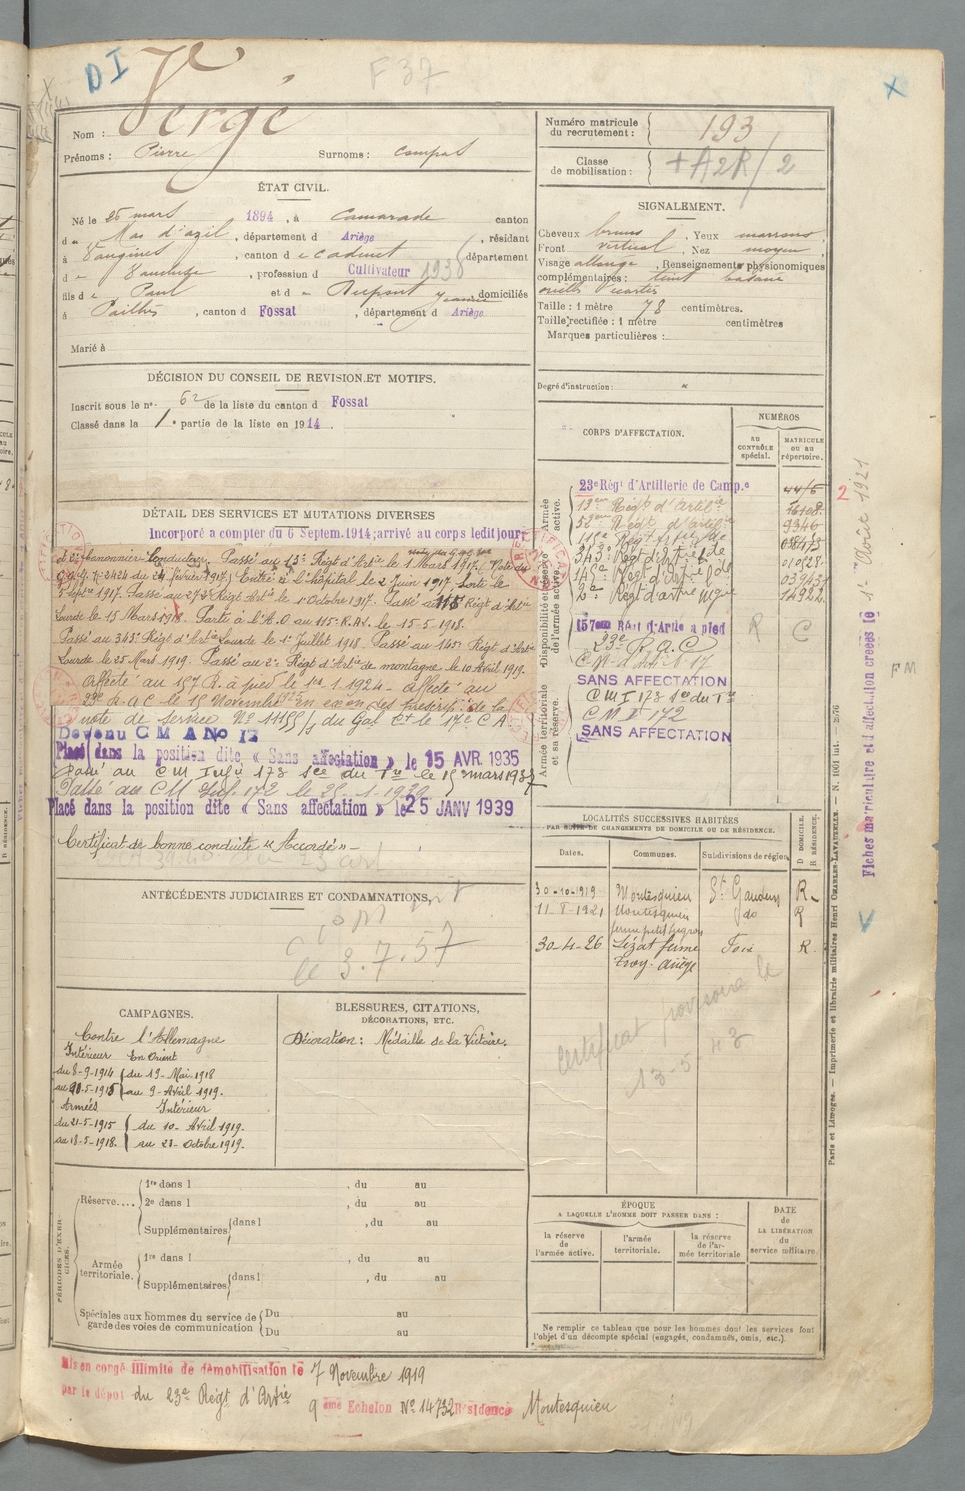 D I
F 37
Nom : Vergé
Prénoms : Pierre Surnoms :
Numéro matricule du recrutement : 193
Classe de mobilisation : + A2R/2
ÉTAT CIVIL.
Né le 25 mars 1894, à Camarade canton
d u Mas d'azil, département d Ariège, résidant
à Vaugines, canton d e Cadenet département
d e Vaucluse, profession d Cultivateur 1938
fils d e Paul et d e Dupont Jeanne domiciliés
à Pailhès, canton d Fossat, département d Ariège
Marié à
SIGNALEMENT.
Cheveux bruns, Yeux marrons,
Front vertical, Nez moyen,
Visage allongé, Renseignements physionomiques
complémentaires : teint basané
oreilles écartées
Taille : 1 mètre 78 centimètres.
Taille rectifiée : 1 mètre centimètres
Marques particulières :
Degré d'instruction :
DÉCISION DU CONSEIL DE REVISION ET MOTIFS.
Inscrit sous le n° 62 de la liste du canton d Fossat
Classé dans la 1e partie de la liste en 1914.
DÉTAIL DES SERVICES ET MUTATIONS DIVERSES
Incorporé a compter du 6 Septem. 1914; arrivé au corps ledit jour
et 2e canonnier Conducteur. Passé au 13e Régt d'Artie le 1 Mars 1917. Note du
G.Q.G. n° 2424 du 24 février 1917. Entré à l'hôpital le 2 Juin 1917. Sorti le
5 Septre 1917. Passé au 273e Régt Artie le 1er Octobre 1917. Passé au 115 Régt d'Artie
Lourde le 15 Mars 1918. Parti à l'A.O au 115e R.A.L. le 15-5-1918.
Passé au 343e Régt d'Artie Lourde le 1er Juillet 1918. Passé au 145e Régt d'Artie
Lourde le 25 Mars 1919. Passé au 2e Régt d'Artie de montagne le 10 Avril 1919.
Affecté au 157 R.A à pied le 1er 1.1924 - Affecté au
23e R.A.C le 15 Novembre en exon des prescript. de la
note de Service No 11155 du Gal Ct le 17e C A
Devenu C M A No 17
Placé dans la position dite « Sans affectation » le 15 AVR. 1935
Passé au C M Infie 173 Sce du Tre le 15 mars 1937
Passé au C M Inf. 172 le
Placé dans la position dite « Sans affectation » le 25 JANV 1939
Certificat de bonne conduite « Accordé » -
CORPS D'AFFECTATION.
NUMÉROS
AU CONTRÔLE spécial.
MATRICULE OU AU répertoire.
Armée active.
Disponibilité et réserve de l'armée active.
Armée territoriale et sa réserve.
23e Régt d'Artillerie de Camp.e
13eme Régt d'Artie
52eme Régt d'Artie 9346
343e Régt d'Artie Lde
145e Régt d'Artie Lde
2e Régt d'artie Mgne 14222
157eme Régt d'Artie a pied R C
23e R.A.C
SANS AFFECTATION
C M I 173 Sce du Tre
C M I 172
SANS AFFECTATION
LOCALITÉS SUCCESSIVES HABITÉES
PAR SUITE DE CHANGEMENTS DE DOMICILE OU DE RÉSIDENCE.
Dates. Communes. Subdivisions de région. D DOMICILE. R RÉSIDENCE.
30-10-1919 Montesquieu St Gaudens R.
11-8-1921 Montesquieu do R
30-4-26 Lézat ferme Foix R.
Certificat provisoire le
13-5-43
ANTÉCÉDENTS JUDICIAIRES ET CONDAMNATIONS.
le 3.7.57
CAMPAGNES.
Contre l'Allemagne
Intérieur En Orient
du 8-9-1914 du 19-Mai-1918
au 20-5-1915 au 9-Avril 1919.
Armées Intérieur
du 21-5-1915 du 10-Avril 1919.
au 18-5-1918. au 21-Octobre 1919.
BLESSURES, CITATIONS,
DÉCORATIONS, ETC.
Décoration : Médaille de la Victoire.
PÉRIODES D'EXERCICES.
Réserve.... 1re dans l , du au
2e dans l , du au
Supplémentaires dans l , du au
Armée territoriale. 1re dans l , du au
Supplémentaires dans l , du au
Spéciales aux hommes du service de garde des voies de communication Du au
Du au
ÉPOQUE
A LAQUELLE L'HOMME DOIT PASSER DANS :
la réserve de l'armée active.
l'armée territoriale.
la réserve de l'armée territoriale
DATE de LA LIBÉRATION du service militaire.
Ne remplir ce tableau que pour les hommes dont les services font
l'objet d'un décompte spécial (engagés, condamnés, omis, etc.).
Mis en congé illimité de démobilisation le 7 Novembre 1919
par le dépôt du 23e Régt d'Artie
9 ème Echelon No 14732 Résidence Montesquieu
2
Fiches matriculaire et d'affectation créées le 1er Août 1921
F M
Paris et Limoges. — Imprimerie et librairie militaires Henri CHARLES-LAVAUZELLE. — N. 1001 int. — 2576